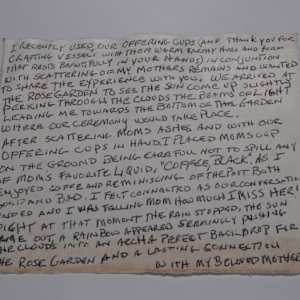 I RECENTLY USED OUR OFFERING CUPS (AND THANK YOU FOR
CRAFTING VESSELS WITH THEM WARM ENERGY AND FORM
THAT RESTS BEAUTIFULLY IN YOUR HANDS) IN CONJUNTION
WITH SCATTERING OF MY MOTHERS REMAINS AND WANTED
TO SHARE THE EXPERIENCE WITH YOU. WE ARRIVED AT
THE ROSE GARDEN TO SEE THE SUN COME UP SLIGHTLY
PEEKING THROUGH THE CLOUDS THE BEAMS OF LIGHT
LEADING ME TOWARDS THE BOTTOM OF THE GARDEN
WHERE OUR CEREMONY WOULD TAKE PLACE.
AFTER SCATTERING MOMS ASHES AND WITH OUR
OFFERING CUPS IN HAND, I PLACED MOMS CUP
ON THE GROUND BEING CAREFUL NOT TO SPILL ANY
OF MOMS FAVORITE LIQUID, "COFFEE, BLACK". AS I
ENJOYED COFFEE AND REMINISCING OF THE PAST BOTH
GOOD AND BAD. I FELT CONNECTED AS OUR CONVERSATION
ENDED AND I WAS TELLING MOM HOW MUCH I MISS HER!
RIGHT AT THAT MOMENT THE RAIN STOPPED, THE SUN
CAME OUT, A RAINBOW APPEARED SEEMINGLY PUSHING
THE CLOUDS INTO AN ARCH A PERFECT BACKDROP FOR
THE ROSE GARDEN AND A LASTING CONNECTION
WITH MY BELOVED MOTHER